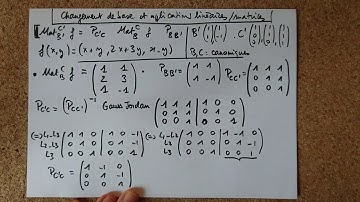 Changement de base et applications linéaires/matrices
Mat_{B'}^{C'} f = P_{C'C} Mat_B^C f P_{BB'}
B' (1 1), (1 -1) C' (1 0 0), (1 1 0), (1 1 1)
f(x,y) = (x+y, 2x+3y, x-y)
B,C: canoniques
• Mat_B^C f = (1 1 / 2 3 / 1 -1) P_{BB'} = (1 1 / 1 -1) P_{CC'} = (1 1 1 / 0 1 1 / 0 0 1)
P_{C'C} = (P_{CC'})^{-1} Gauss Jordan (1 1 1 | 1 0 0 / 0 1 1 | 0 1 0 / 0 0 1 | 0 0 1)
(=) L1-L3 (1 1 0 | 1 0 -1 (=) L1-L2 (1 0 0 | 1 -1 0
L2-L3 0 1 0 | 0 1 -1 L2 0 1 0 | 0 1 -1
L3 0 0 1 | 0 0 1) L3 0 0 1 | 0 0 1)
P_{C'C} = (1 -1 0 / 0 1 -1 / 0 0 1)